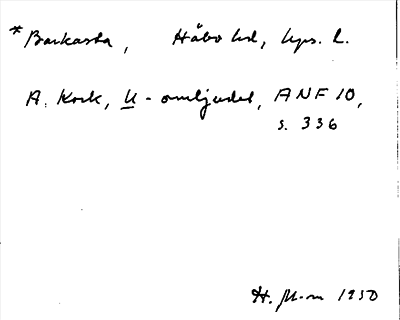 *Barkasta, Håbo hd, Ups. l.
A. Kock, U-omljudet, ANF 10,
s. 336
H. M-m 1950